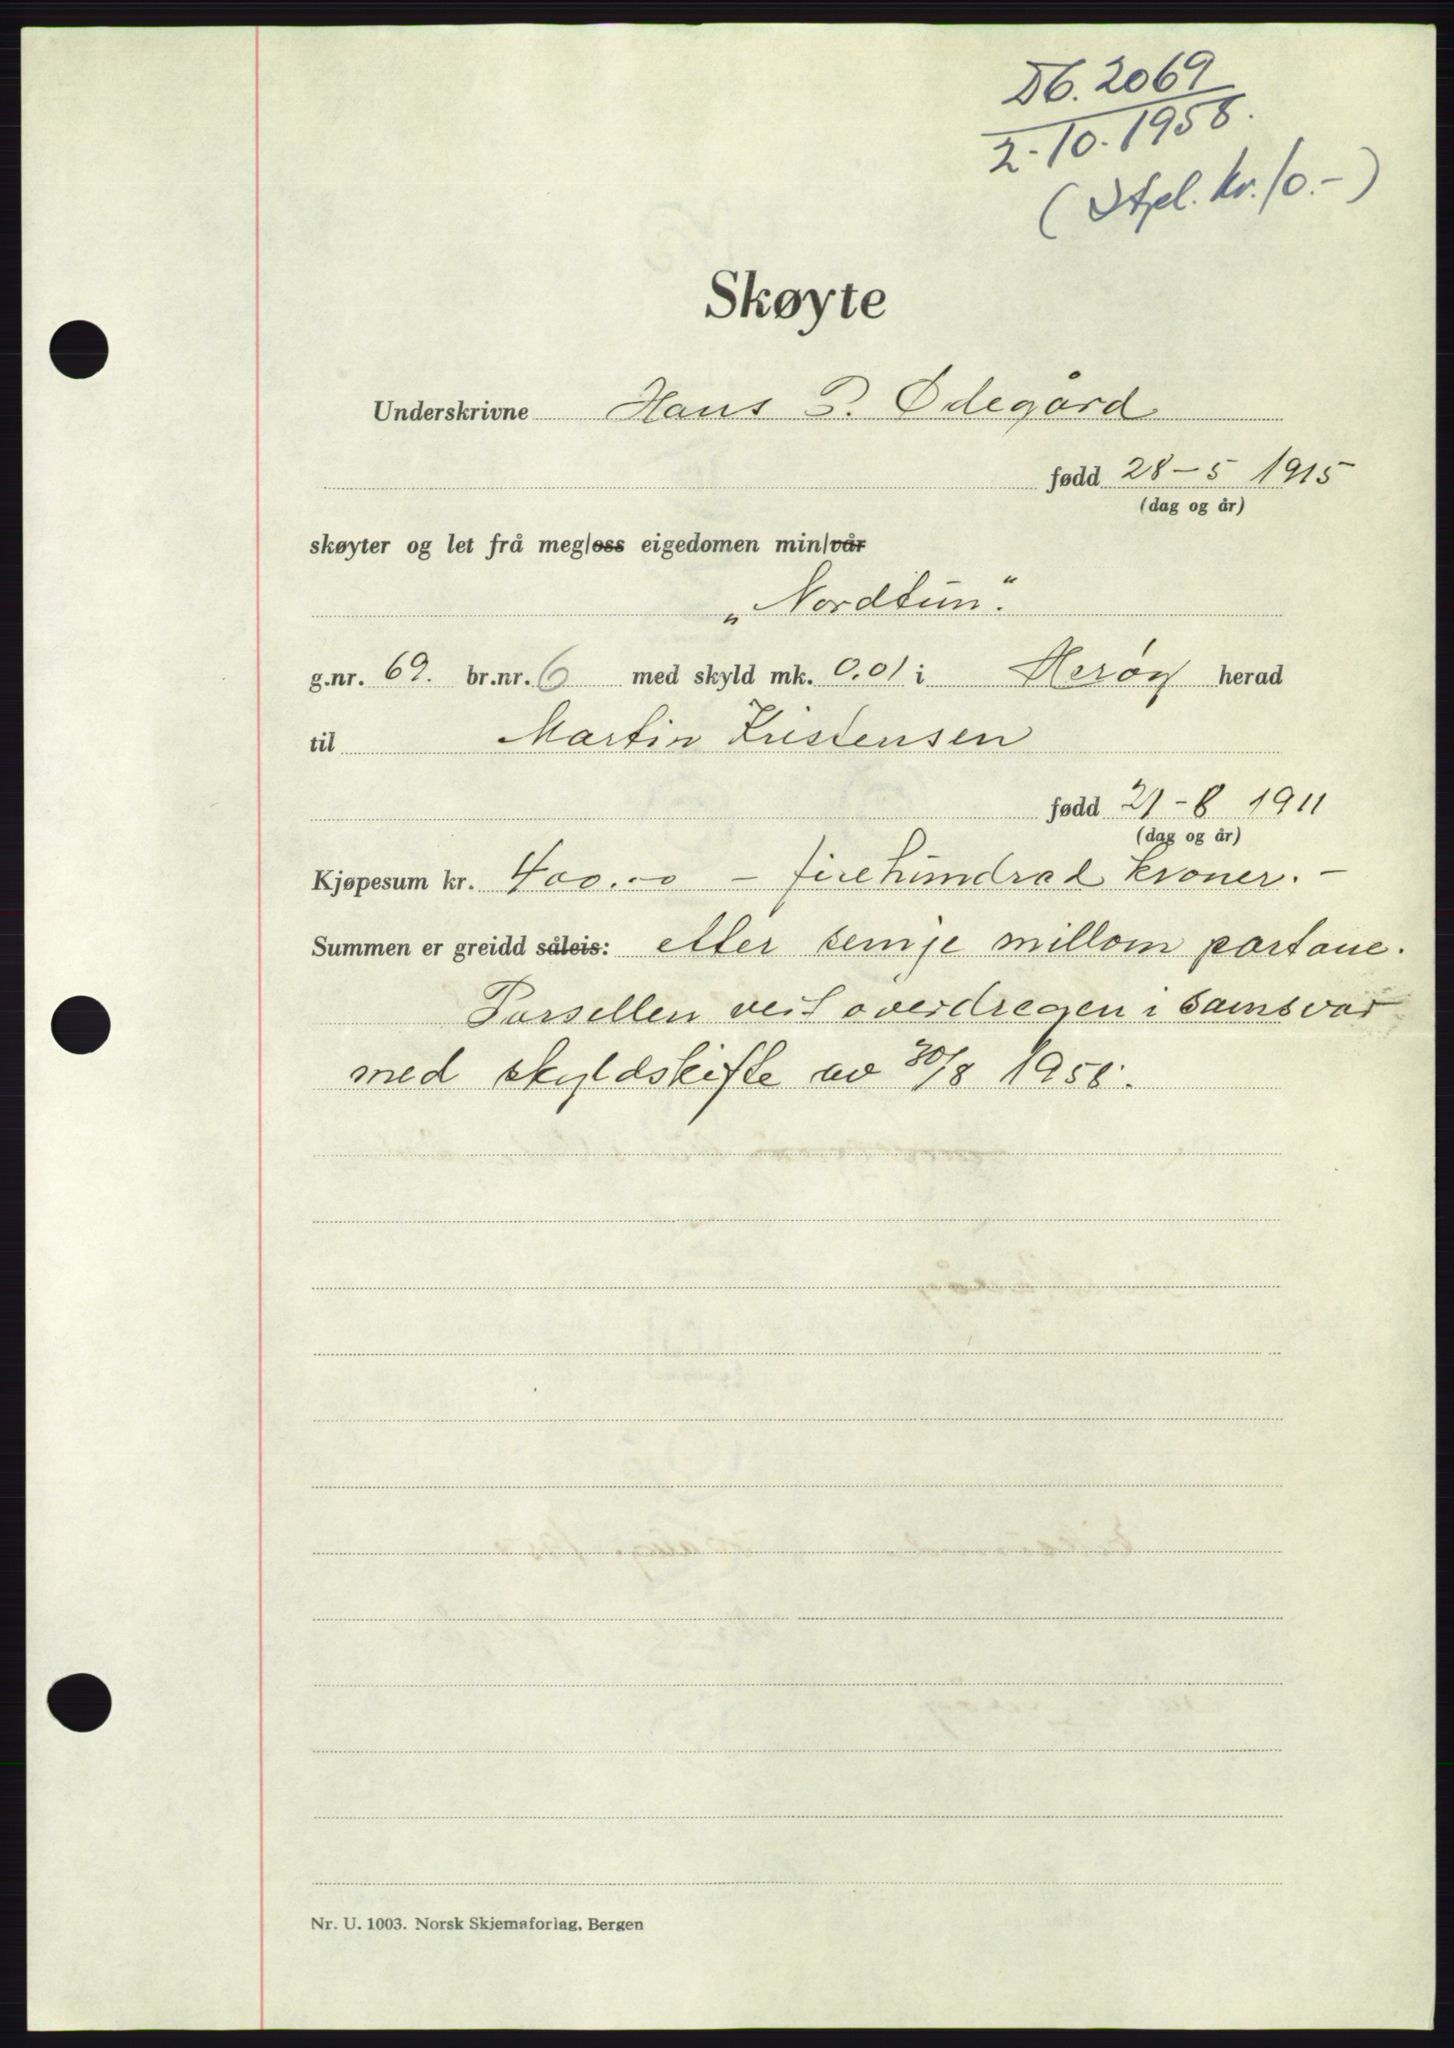 Db. 2069
2.-10.-1958.
(Stpl. kr. 10.-)
Skøyte
Underskrivne Hans P. Ødegård
fødd 28-5 1915
(dag og år)
skøyter og let frå meg/oss eigedomen min/vår
„Nordtun".
g.nr. 69. br.nr. 6 med skyld mk. 0,01 i Herøy herad
til Martin Kristensen
fødd 21-8 1911
(dag og år)
Kjøpesum kr. 400.-o - firehundrad kroner. -
Summen er greidd såleis: etter semje millom partane.
Parsellen vert overdregen i samsvar
med skyldskifte av 30/8 1958.
Nr. U. 1003. Norsk Skjemaforlag, Bergen